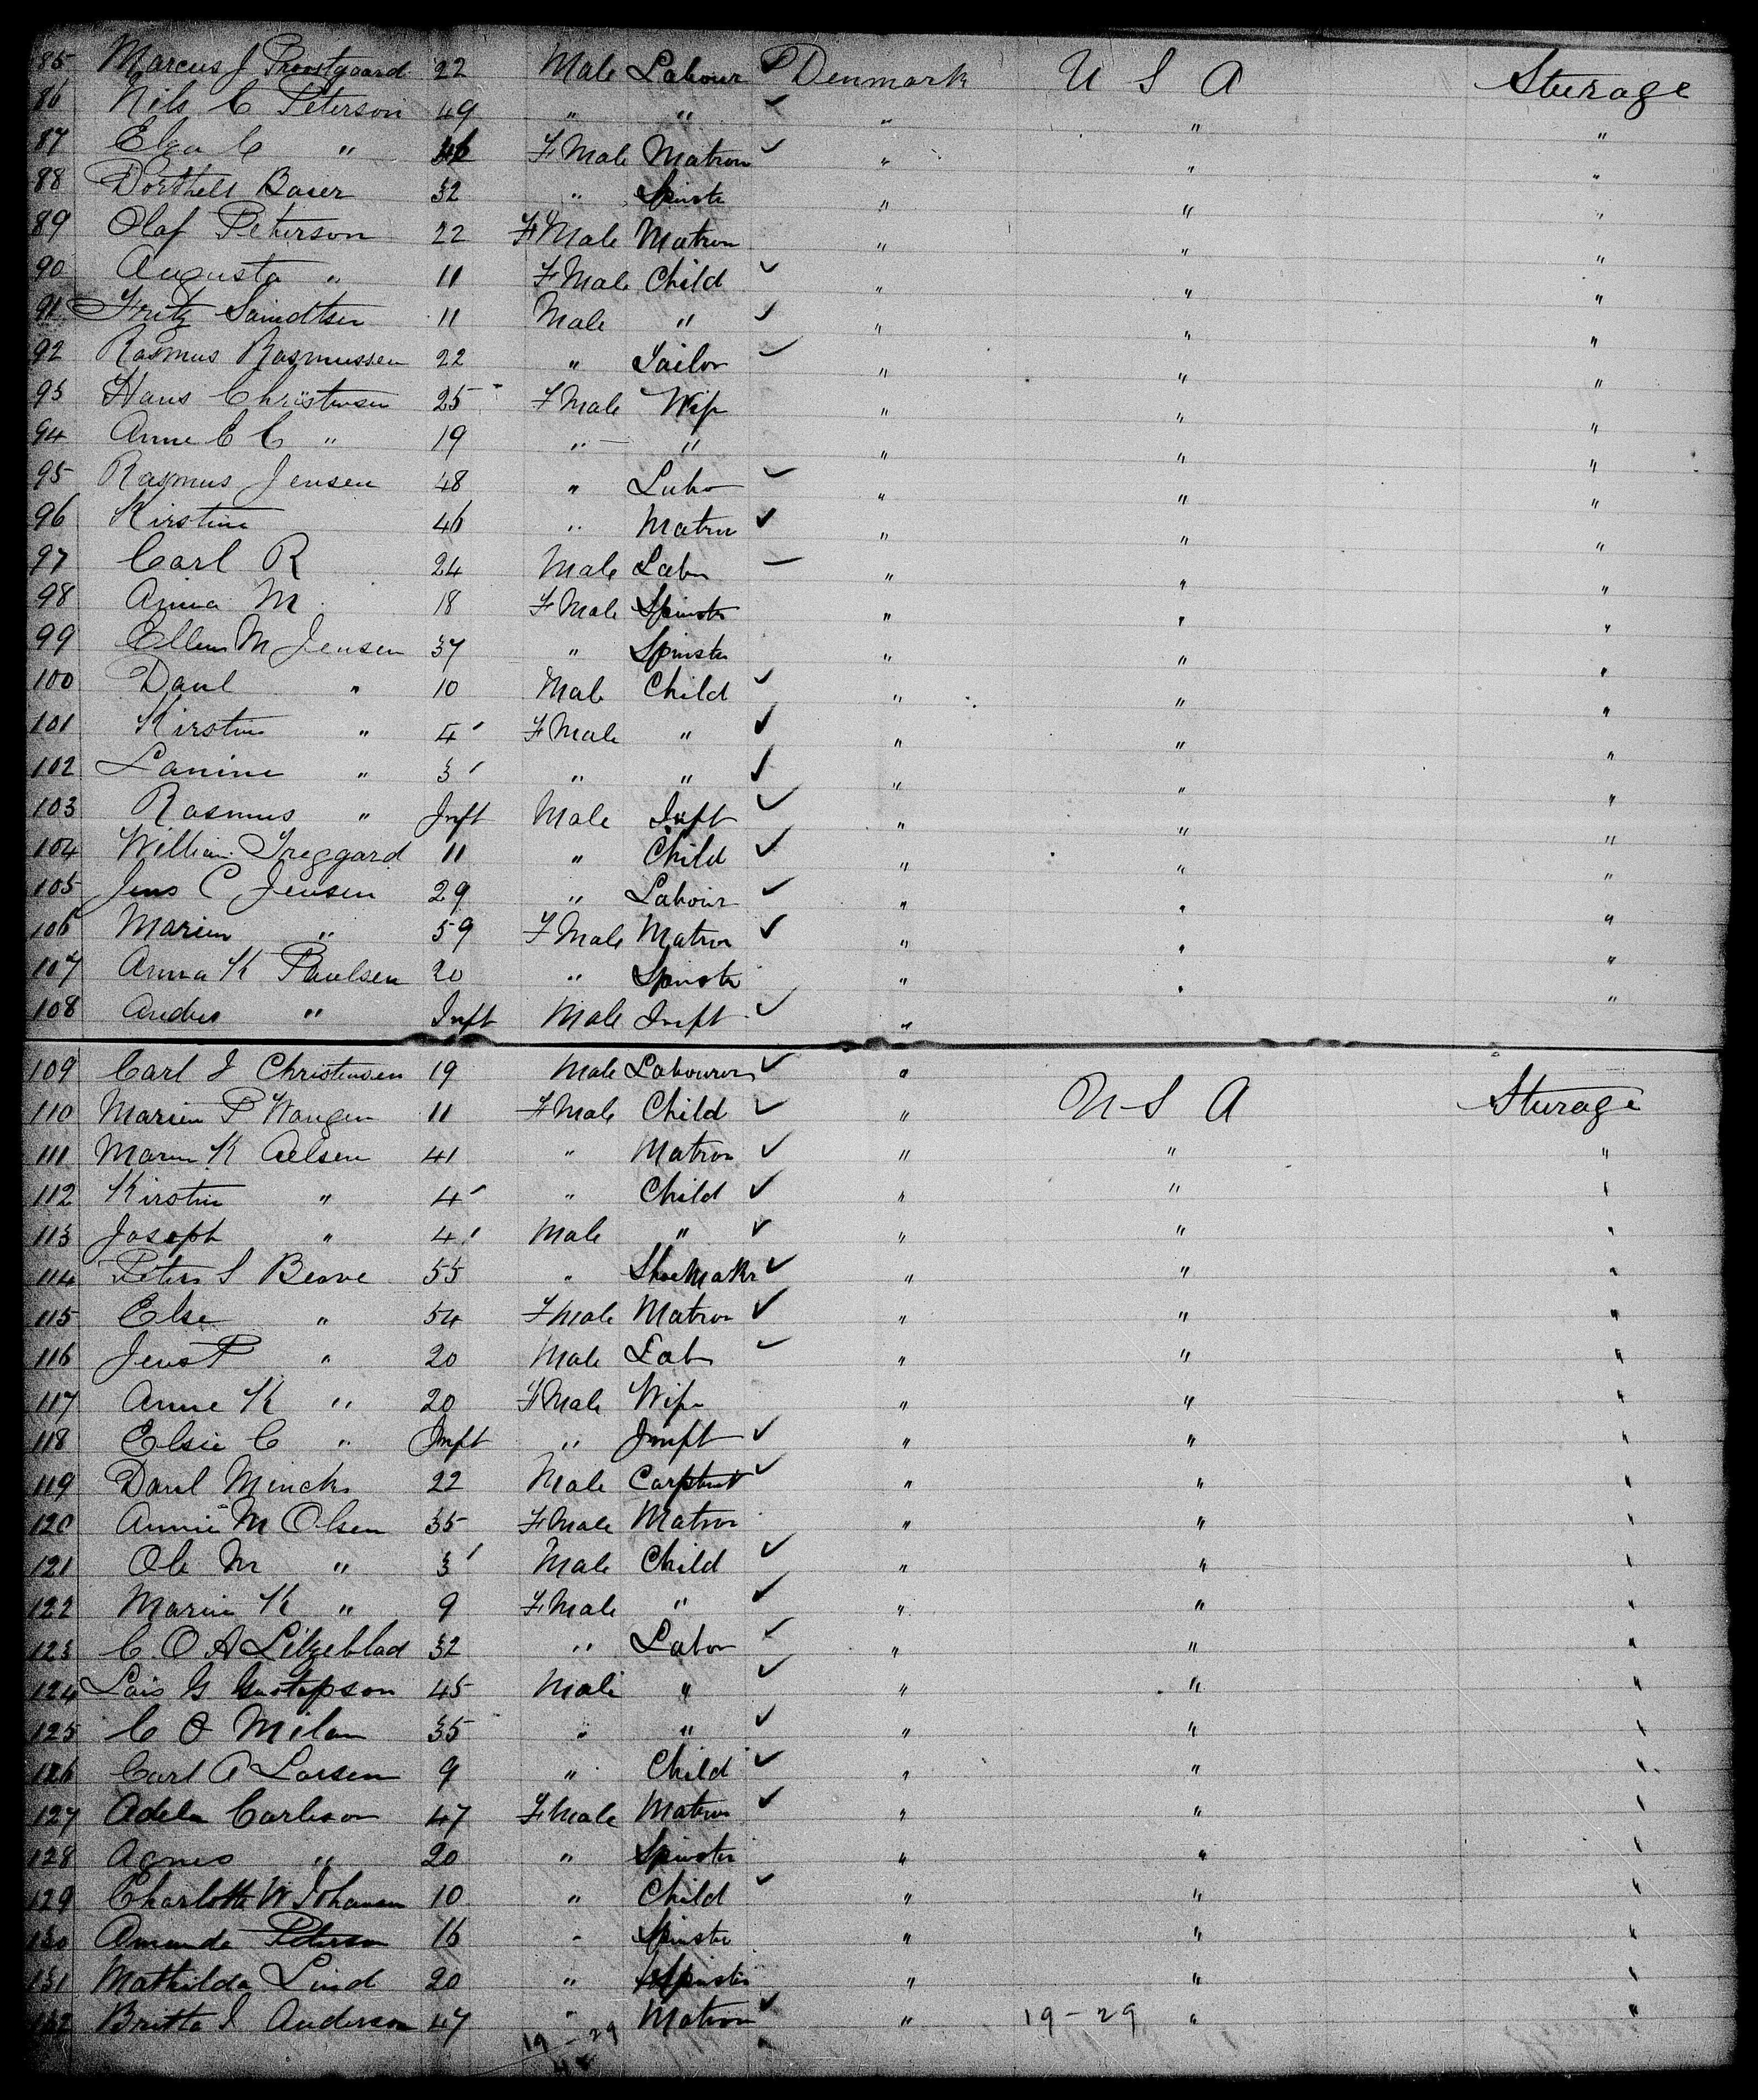 85 Marcus J 22 Male Labour Denmark U S A Sturage
86 Nils C Peterson 49 " " " " "
87 Elga C " 46 F Male Matron " " "
88 Dorthell Baier 32 " Spinste " " "
89 Olaf Peterson 22 F Male Matron " " "
90 Augusta " 11 F Male Child " " "
91 Fritz 11 Male " " " "
92 Rasmus Rasmussen 22 " Tailor " " "
93 Hans Christensen 25 F Male Wife " " "
94 Anne C C " 19 " " " " "
95 Rasmus Jensen 48 " Labo " " "
96 Kirstine 46 " Matron " " "
97 Carl R 24 Male Labr " " "
98 Anna M 18 F Male Spinste " " "
99 Ellen M Jensen 37 " Spinste " " "
100 Danl " 10 Male Child " " "
101 Kirstine " 4 F Male " " " "
102 Lanine " 3 " " " " "
103 Rasmus " Inft Male Inft " " "
104 William Treggard 11 " Child " " "
105 Jens C Jensen 29 " Labour " " "
106 Maren " 59 F Male Matron " " "
107 Anna K Paulsen 20 " Spinste " " "
108 Andres " Inft Male Inft "
109 Carl J Christensen 19 Male Labourer "
110 Marien P Wangen 11 F Male Child " U S A Sturage
111 Maren K Aelsen 41 " Matron " " "
112 Kirstin " 4 " Child " " "
113 Joseph " 4 Male " " " "
114 Peter S Beave 55 " Shoemakr " " "
115 Else " 54 F Male Matron " " "
116 Jens P " 20 Male Lab " " "
117 Anne K " 20 F Male Wife " " "
118 Elsie C " Inft " Inft " " "
119 Danl Mincks 22 Male " " "
120 Annie M Olsen 35 F Male Matron " " "
121 Ole M " 3 Male Child " " "
122 Marie K " 9 F Male " " " "
123 C O A Liljeblad 32 " Labor " " "
124 Lars G Gustafson 45 Male " " " "
125 C O Milan 35 " " " " "
126 Carl A Larsen 9 " Child " " "
127 Adela Carlsson 47 F Male Matron " " "
128 Agnes " 20 " Spinster " " "
129 Charlotte W Johansen 10 " Child " " "
130 Amanda Peterson 16 " Spinste " " "
131 Mathilda Lind 20 " Spinster " " "
132 Britta I Anderson 47 " Matron " 19-29 " "
19-29